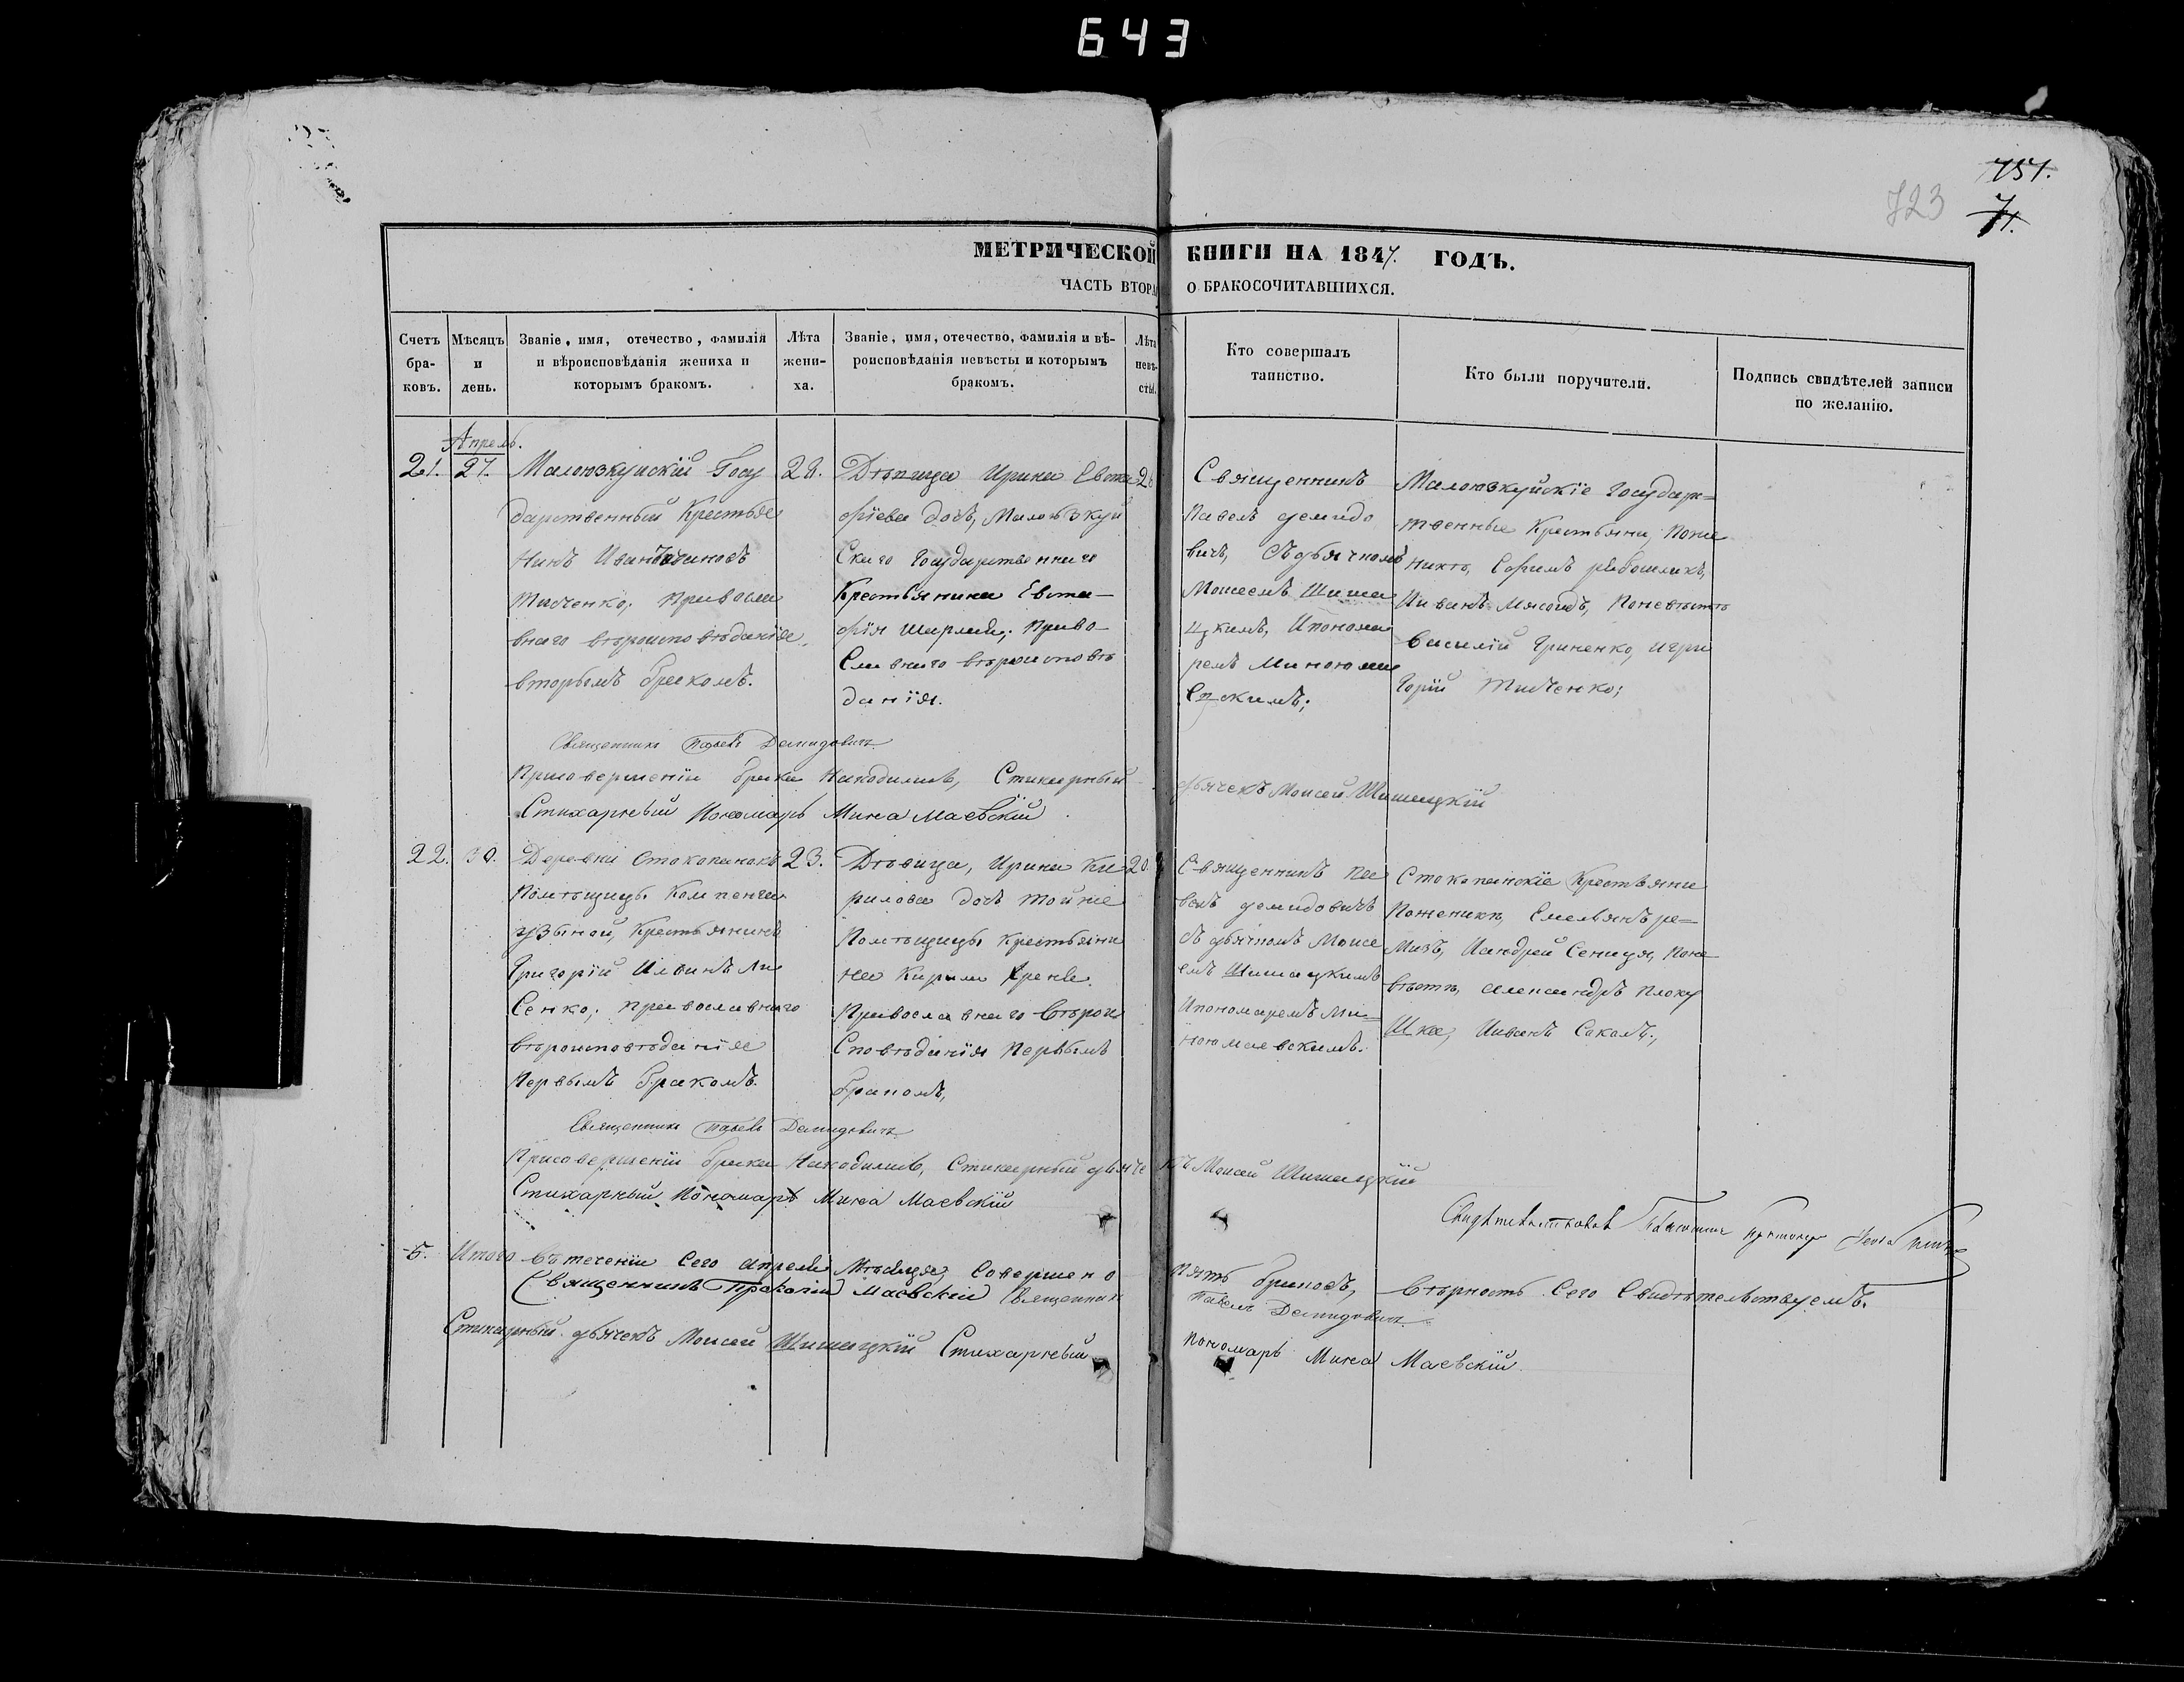 643
751.
723
71.
МЕТРИЧЕСКОЙ КНИГИ НА 1847. ГОДЪ.
ЧАСТЬ ВТОРА О БРАКОСОЧИТАВШИХСЯ.
Счетъ
бра-
ковъ.
Мѣсяцъ
и
день.
Званіе, имя, отечество, фамилія
и вѣроисповѣданія жениха и
которымъ бракомъ.
Лѣта
жени-
ха.
Званіе, имя, отечество, фамилія и вѣ-
роисповѣданія невѣсты и которымъ
бракомъ.
Лѣта
невѣ-
сты.
Кто совершалъ
таинство.
Кто были поручители.
Подпись свидѣтелей записи
по желанію.
Апрель.
21.
27.
Малоюзкуйскій Госу
дарственный Крестья
нинъ Иванъ
Титченко; Правосла
внаго вѣроисповѣданія
вторымъ бракомъ.
28.
Дѣвица Ирина Евста
фіева дочь, Малоюзкуй
скаго Государственнаго
Крестьянина Евста-
фія Шарлай; Право-
славнаго вѣроисповѣ
данія.
26
Священникъ
Павелъ Демидо
вичъ, Съ дьячкомъ
Моисеемъ Шиша
цкимъ, Ипонома
ремъ Миною Мае
вскимъ;
Малоюзкуйскіе Государ=
твенные Крестьяни; Поже
никѣ, Ефимъ Рибошлика,
Ииванъ Мясоидъ, Поневѣстѣ
Василій Гриненко, игри
горій Титченко;
Священникъ Павелъ Демидовичъ
Присовершеніи брака Находились, Стихарный дьячекъ Моисей Шишацкій
Стихарный Пономарь Мина Маевскій
22.
30.
Деревни Стокопанокъ
Помѣщицы Компанѣй
цзыной, Крестьянинъ
Григорій Ивинъ Ли
сенко; Православнаго
вѣроисповѣданія
Первымъ бракомъ.
23.
Дѣвица, Ирина Ки
рилова дочь тойже
Помѣщицы Крестьяни
на Кирила
Православнаго Вѣрои
сповѣданія Первымъ
бракомъ,
20.
Священникъ Па
велъ Демидовичъ
Съ дьячкомъ Моисе
емъ Шишацкимъ
Ипономаремъ Ми=
ною Маевскимъ.
Стокопанскіе Крестьяни
Поженикѣ, Емельянъ Ре=
мизъ, Иандрей Сеница, Поне
вѣстѣ, Александръ Плоку
Шка, Ииванъ Сокалъ;
Священникъ Павелъ Демидовичъ
Присовершеніи брака Находились, Стихарный дьячекъ Моисей Шишацкій
Стихарный Пономарь Мина Маевскій
5. Итого Въ теченіи Сего Апреля Мѣсяца Совершено Пять браковъ, Вѣрность Сего Свидѣтельствуемъ.
Священникъ Прокопій Маевскій Священникъ Павелъ Демидовичъ
Стихарный дьячекъ Моисей Шишацкій Стихарный Пономарь Мина Маевскій